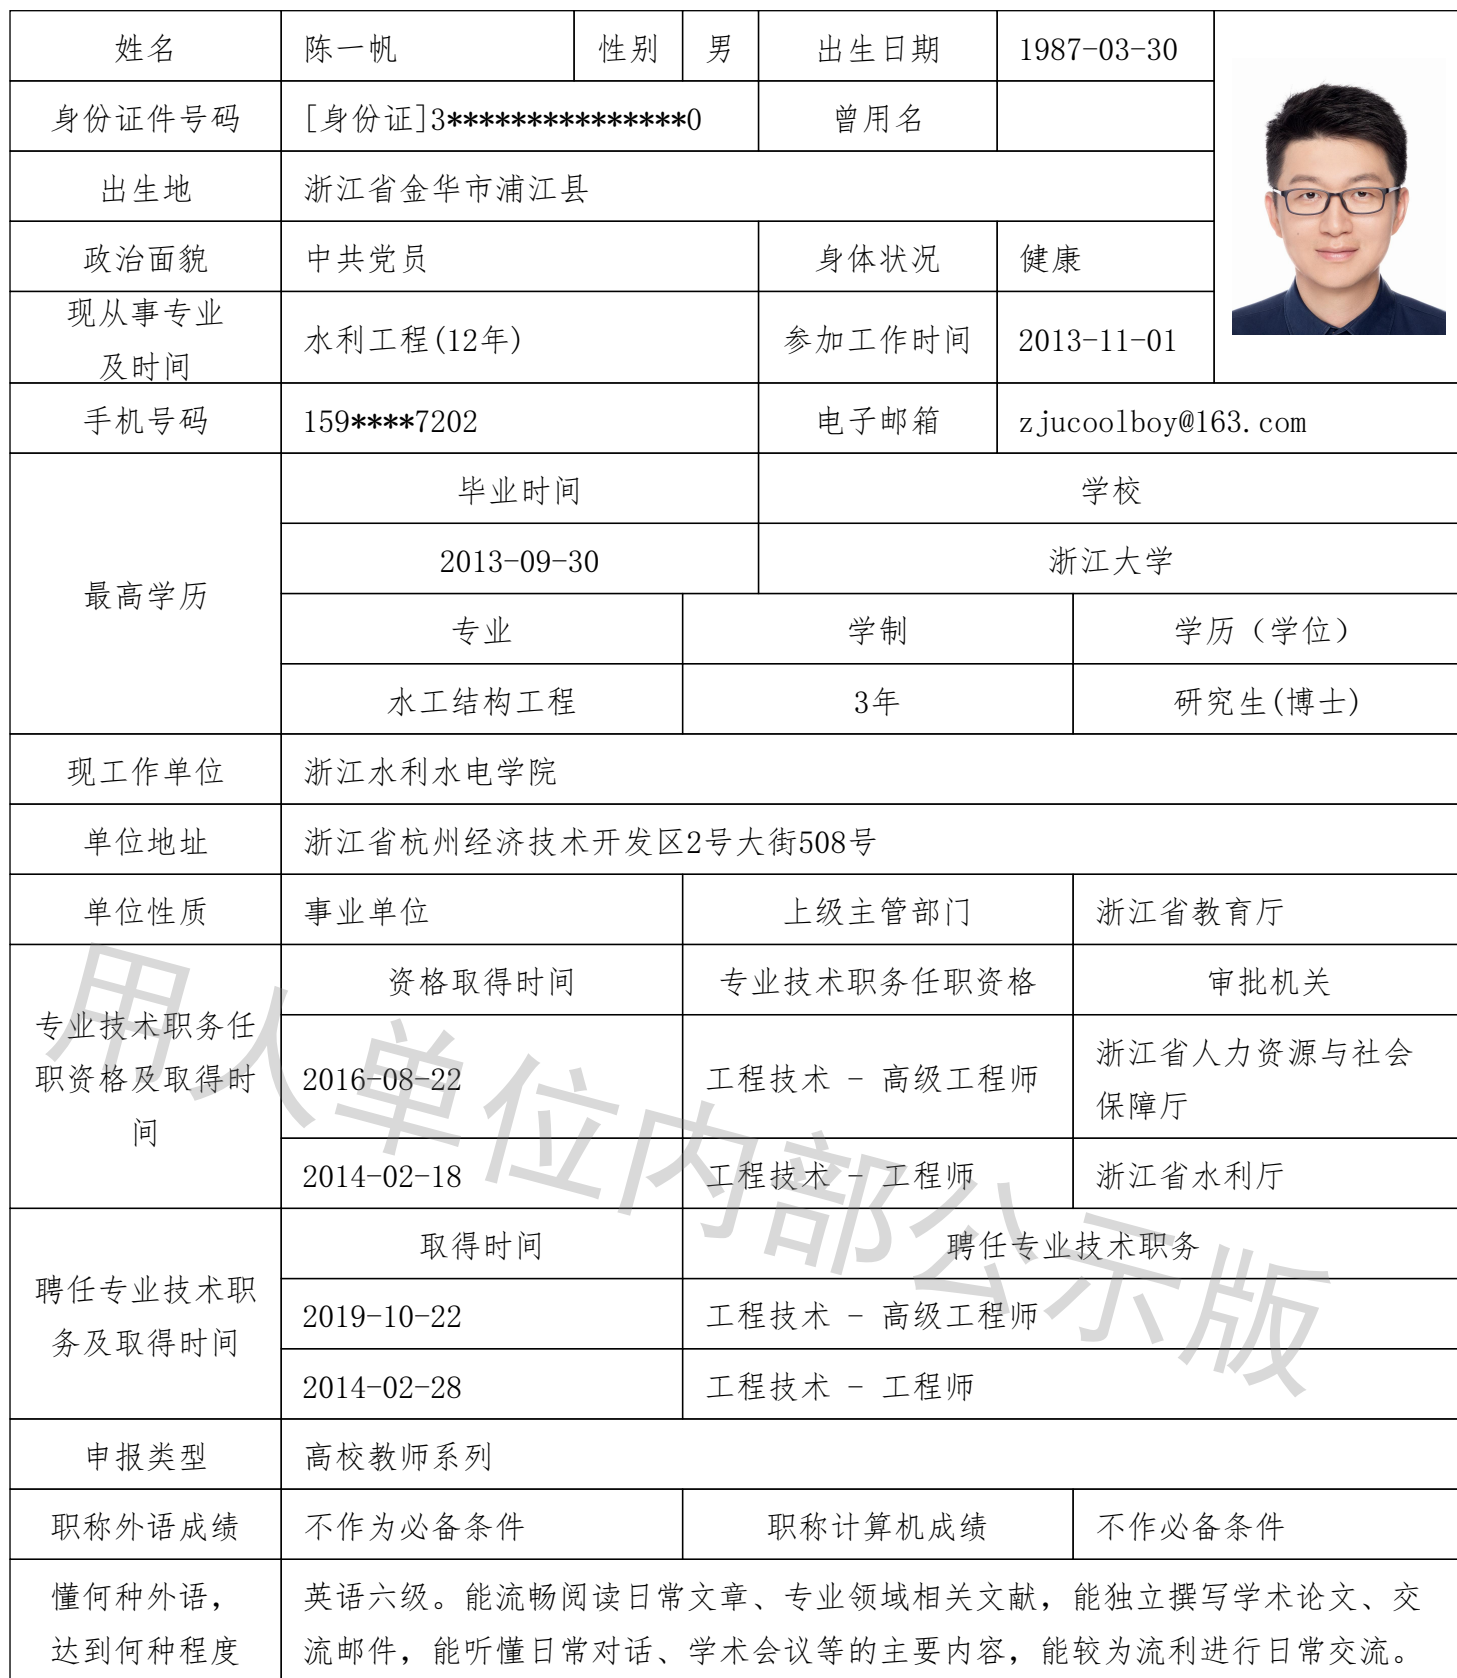 姓名 陈一帆 性别 男 出生日期 1987-03-30
身份证件号码 [身份证]3***************0 曾用名
出生地 浙江省金华市浦江县
政治面貌 中共党员 身体状况 健康
现从事专业
及时间
水利工程(12年) 参加工作时间 2013-11-01
手机号码 159****7202 电子邮箱 zjucoolboy@163.com
最高学历
毕业时间 学校
2013-09-30 浙江大学
专业 学制 学历（学位）
水工结构工程 3年 研究生(博士)
现工作单位 浙江水利水电学院
单位地址 浙江省杭州经济技术开发区2号大街508号
单位性质 事业单位 上级主管部门 浙江省教育厅
专业技术职务任
职资格及取得时
间
资格取得时间 专业技术职务任职资格 审批机关
2016-08-22 工程技术 - 高级工程师 浙江省人力资源与社会
保障厅
2014-02-18 工程技术 - 工程师 浙江省水利厅
聘任专业技术职
务及取得时间
取得时间 聘任专业技术职务
2019-10-22 工程技术 - 高级工程师
2014-02-28 工程技术 - 工程师
申报类型 高校教师系列
职称外语成绩 不作为必备条件 职称计算机成绩 不作必备条件
懂何种外语，
达到何种程度
英语六级。能流畅阅读日常文章、专业领域相关文献，能独立撰写学术论文、交
流邮件，能听懂日常对话、学术会议等的主要内容，能较为流利进行日常交流。
用人单位内部公示版